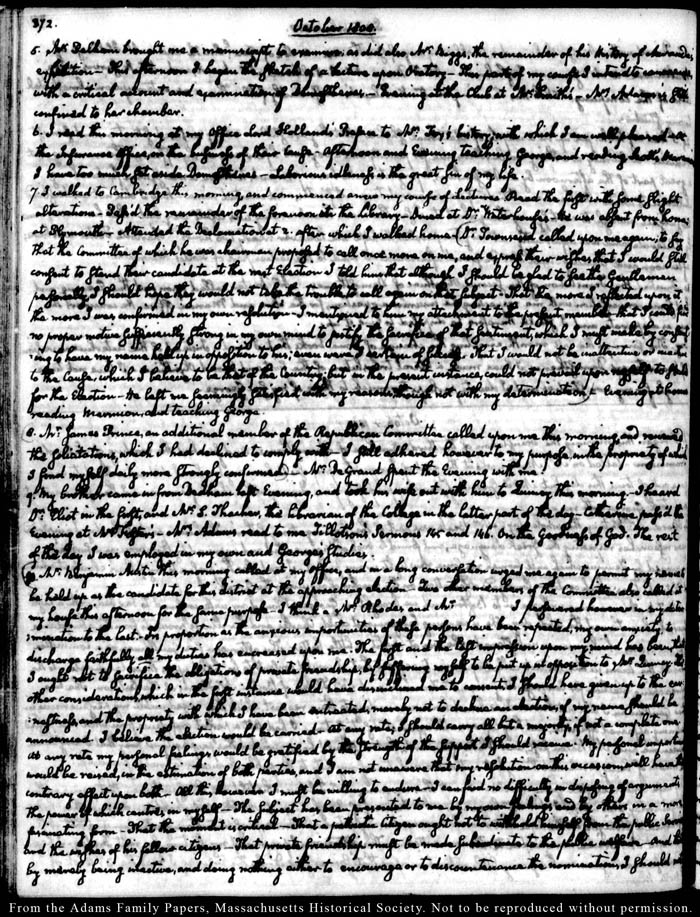 372.
October 1808.
5. Mr. Pelham brought me a manuscript to examine, as did also Mr. Biggs, the remainder of his History of Miranda's
expedition — This afternoon I began the sketch of a lecture upon Oratory — This part of my course I intend to commence
with a critical account and examination of Demosthenes — Evening at the Club at Mr. Smith's — Mrs. Adams is still
confined to her chamber.
6. I read this morning at my Office Lord Holland's Preface to Mr. Fox's history, with which I am well pleased
the Insurance Office, on the business of their Cause — Afternoon and Evening teaching George, and reading Scott's Marmion
I have too much set aside Demosthenes — Laborious idleness is the great sin of my life.
7. I walked to Cambridge this morning, and commenced anew my course of Lectures. Read the first with some slight
alterations — Pass'd the remainder of the forenoon at the Library — Dined at Dr. Waterhouse's — He was absent from home,
at Plymouth — Attended the Declamation at 2. after which I walked home (Dr. Townsend called upon me again, to say
that the Committee of which he was chairman proposed to call once more on me, and express their wishes that I would still
consent to stand their candidate at the next Election. I told him that although I should be glad to see the Gentlemen
personally, I should hope they would not take the trouble to call again on that subject — That the more I reflected upon it,
the more I was confirmed in my own resolution — I mentioned to him my attachment to the present member that I could find
no proper motive sufficiently strong in my own mind to justify the sacrifice of that sentiment, which I must make by consent
-ing to have my name held up in opposition to his; even were I certain of success. That I would not be inattentive or inactive
to the Cause, which I believe to be that of the Country; but in the present instance, could not prevail upon myself to stand
for the Election — He left me seemingly satisfied with my reasons, though not with my determination) — Evening at home
reading Marmion, and teaching George.
8. Mr. James Prince, an additional member of the Republican Committee called upon me this morning, and renewed
the solicitations, which I had declined to comply with — I still adhered however to my purpose, in the propriety of which
I find myself daily more strongly confirmed) — Mr. De Grand spent the Evening with me.
9. My brother came in from Dedham last Evening, and took his wife out with him to Quincy this morning — I heard
Dr. Eliot in the first, and Mr. S. Thacher, the Librarian of the College in the latter part of the day — Catharine pass'd the
Evening at Mrs. — Mrs. Adams read to me Tillotson's Sermons 145 and 146. On the Goodness of God. The rest
of the day I was employed in my own and George's Studies.
Mr. Benjamin Austin this morning called at my office, and in a long conversation urged me again to permit my name to
be held up as the candidate for this district at the approaching election — Two other members of the Committee also called at
my house this afternoon for the same purpose — I think a Mr. Rhodes and Mr. I persevered however in my deter
-mination to the last. In proportion as the anxious importunities of these persons have been repeated, my own anxiety to
discharge faithfully all my duties has encreased upon me. The first and the last impression upon my mind has been, that
I ought not to sacrifice the obligations of private friendship, by suffering myself to be put up in opposition to Mr. Quincy. The
other considerations which in the first instance would have disinclined me to consent, I should have given up to the ear
-nestness, and the propriety with which I have been entreated, merely not to decline an election, if my name should be
announced. I believe the election would be carried — At any rate, I should carry all but a majority, if not a complete one
At any rate my personal feelings would be gratified by the strength of the support I should receive — My personal importance
would be raised, in the estimation of both parties, and I am not unaware that my resolution on this occasion, will have the
contrary effect upon both — All this however I must be willing to endure — I can find no difficulty in disposing of arguments
the power of which centres in myself — The subject has been presented to me by my own feelings and by others in a more
fascinating form — That the moment is critical — That a patriotic citizen ought not to withhold himself from the public service
and the wishes of his fellow citizens — That private friendship must be made subordinate to the public welfare — And that
by merely being inactive, and doing nothing either to encourage or to discountenance the nomination, I should
From the Adams Family Papers, Massachusetts Historical Society. Not to be reproduced without permission.